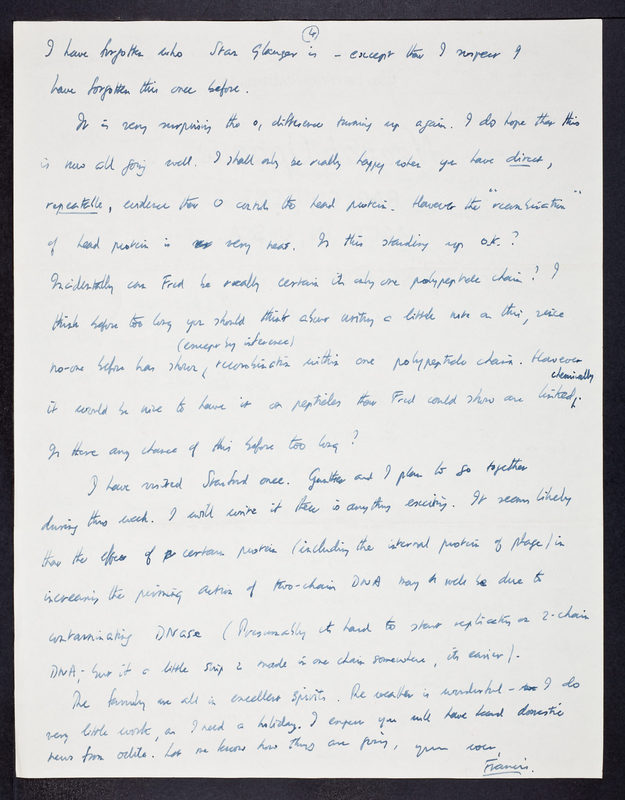 4
I have forgotten who Stan Glanzer is - except that I suspect I
have forgotten this once before.
It is very surprising the o, difference turning up again. I do hope that this
is now all going well. I shall only be really happy when you have direct,
repeatable, evidence that O controls the head protein. However the "recombination"
of head protein is very neat. Is this standing up O.K.?
Incidentally can Fred be really certain its only one polypeptide chain? I
think before too long you should think about writing a little note on this, since
(except by inference)
no-one before has shown, recombination within one polypeptide chain. However
chemically
it would be nice to have it on peptides that Fred could show are linked.
Is there any chance of this before too long?
I have visited Stanford once. Gunther and I plan to go together
during this week. I will write if there is anything exciting. It seems likely
that the effect of certain protein (including the internal protein of phage) in
increasing the priming action of two-chain DNA may well be due to
contaminating DNase (Presumably its hard to start replication on 2-chain
DNA; but if a little snip is made in one chain somewhere, its easier).
The family are all in excellent spirits. The weather is wonderful - I do
very little work, as I need a holiday. I expect you will have heard domestic
news from Odile. Let me know how things are going, yours ever,
Francis.